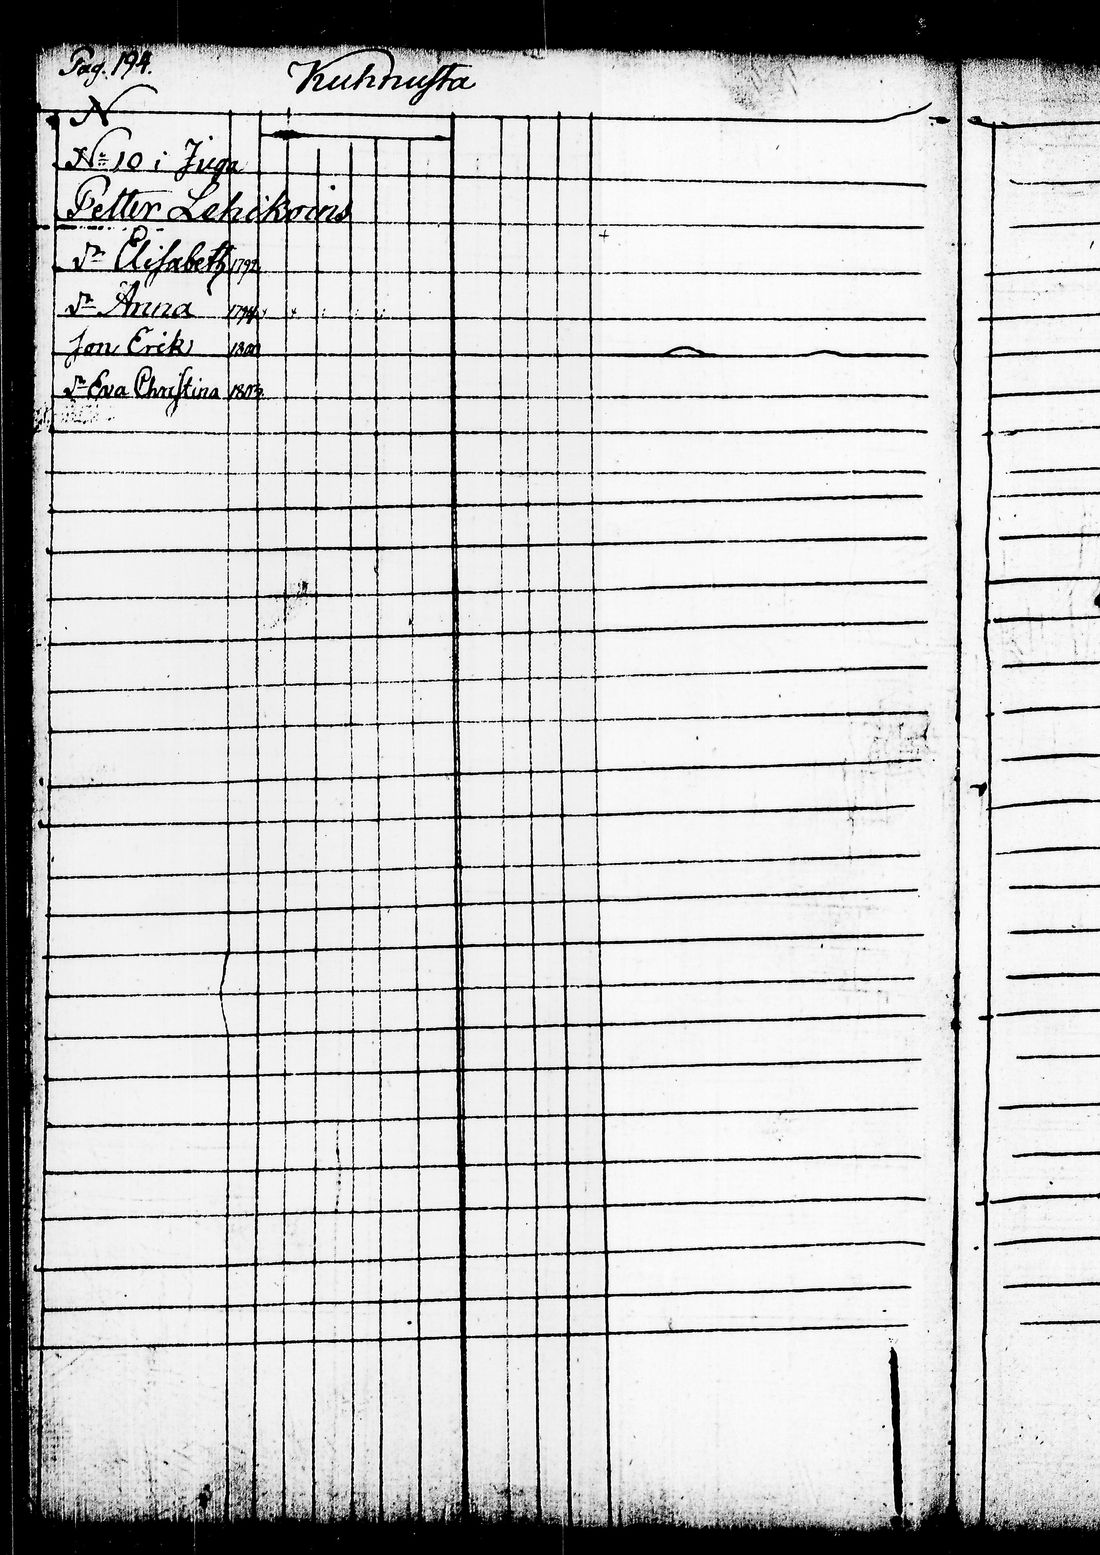 Pag. 194.
Kuhnusta
N
No 10 i Juga
Petter Lehikoins
Dr Elisabeth 1792
Dr Anna 1794
Son Erik 1800
Dr Eva Christina 1803